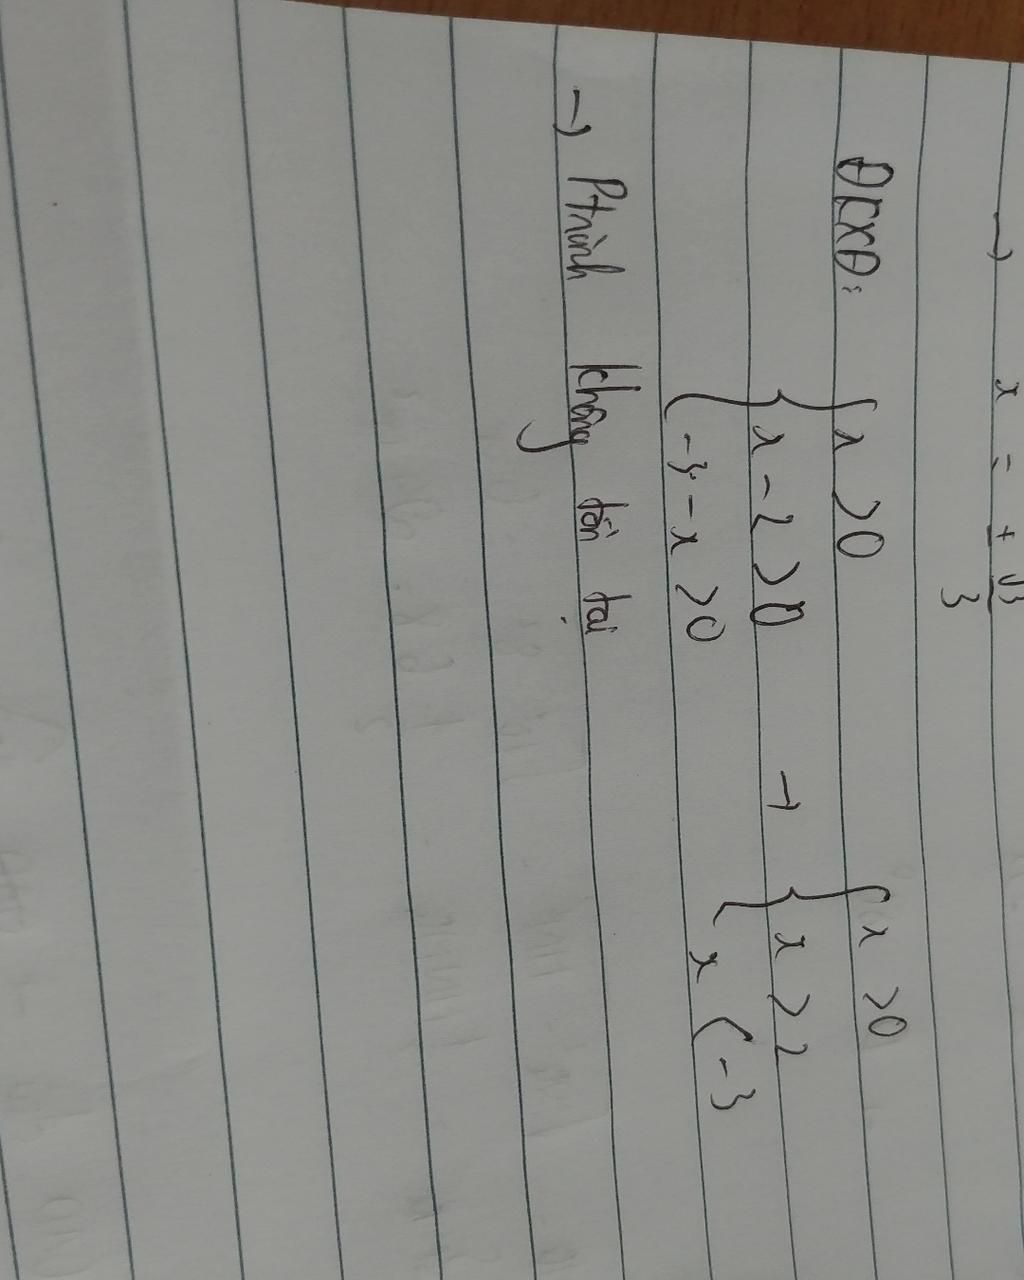 → x = ± √3/3
ĐKXĐ: { x > 0 → { x > 0
x - 2 > 0 x > 2
-3 - x > 0 x < -3
→ Ptrình không tồn tại